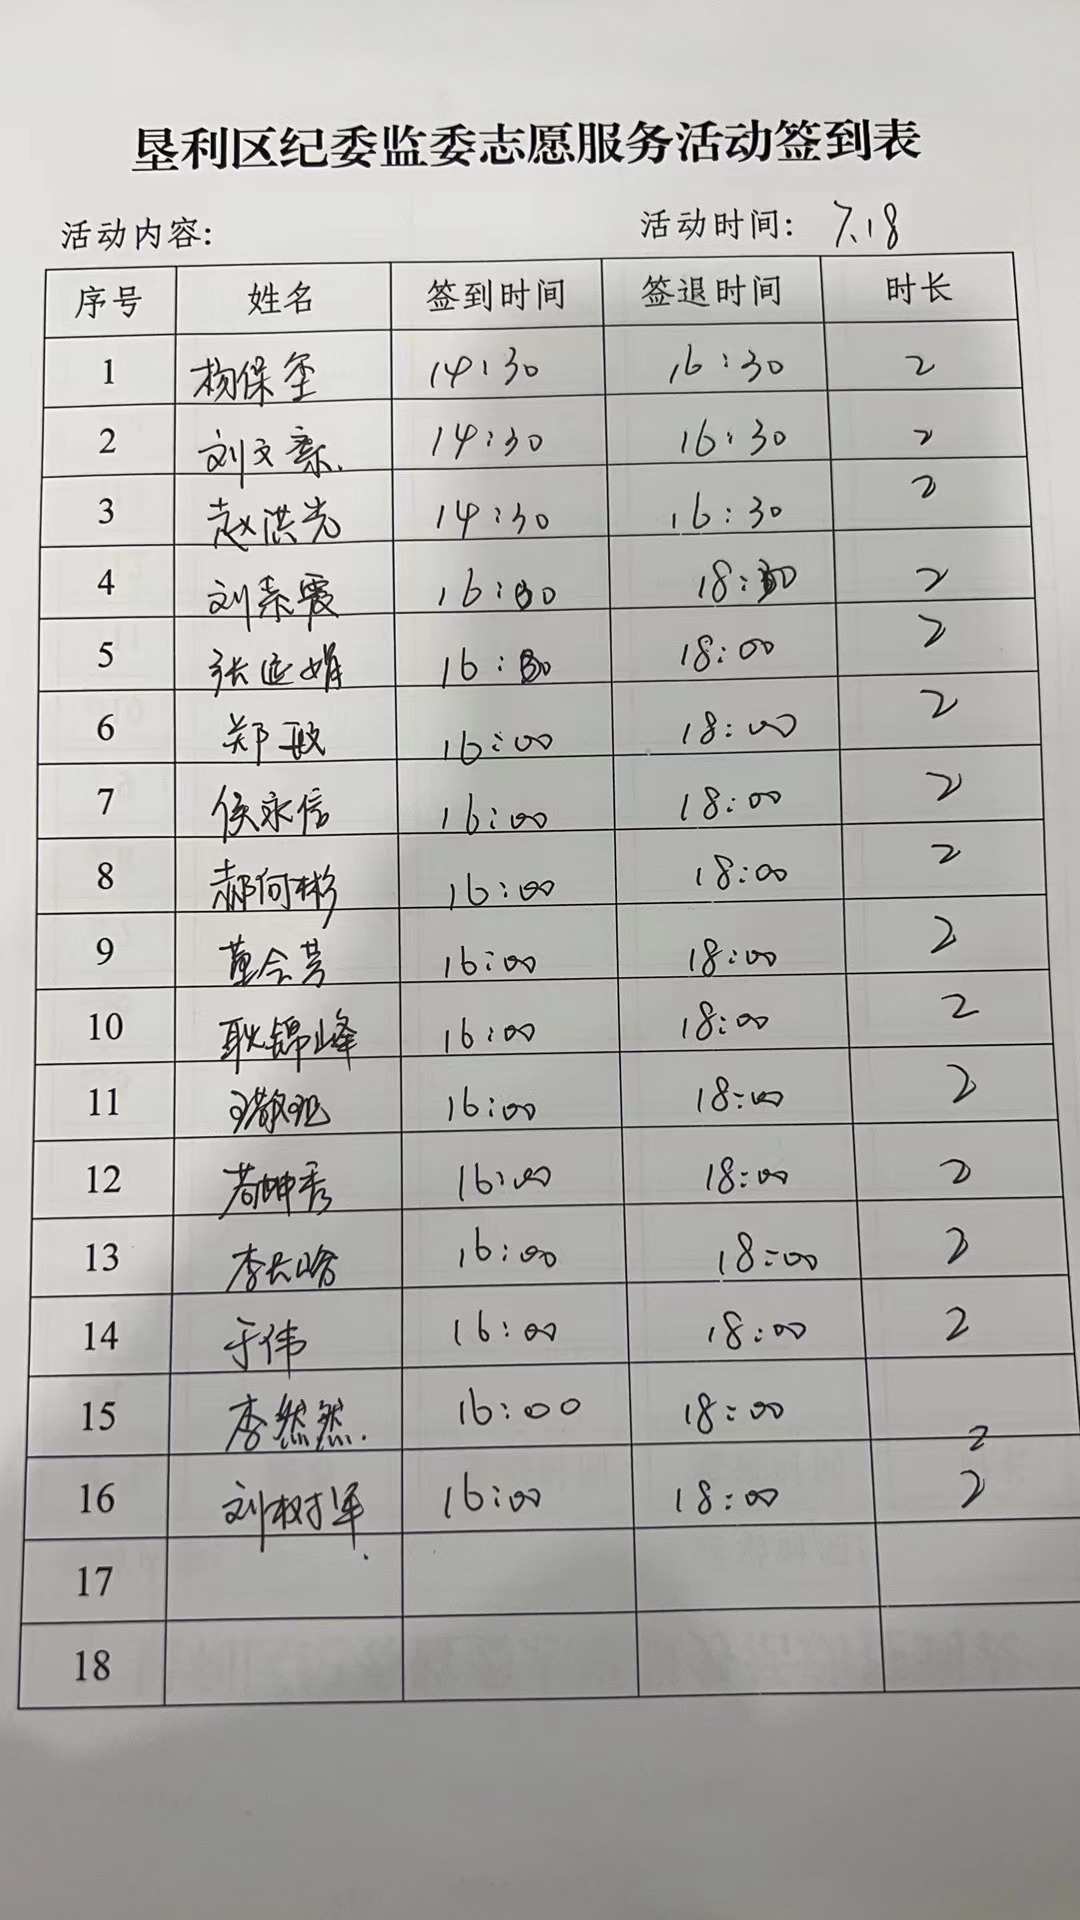 垦利区纪委监委志愿服务活动签到表
活动内容: 活动时间: 7.18
序号 姓名 签到时间 签退时间 时长
1 杨保奎 14:30 16:30 2
2 刘文 14:30 16:30 2
3 赵洪光 14:30 16:30 2
4 刘素霞 16:00 18:00 2
5 张延娟 16:00 18:00 2
6 郑敏 16:00 18:00 2
7 侯永信 16:00 18:00 2
8 郝何彬 16:00 18:00 2
9 董会芳 16:00 18:00 2
10 耿锦峰 16:00 18:00 2
11 16:00 18:00 2
12 苟坤秀 16:00 18:00 2
13 李长峰 16:00 18:00 2
14 于伟 16:00 18:00 2
15 李然然. 16:00 18:00 2
16 刘树军. 16:00 18:00 2
17
18